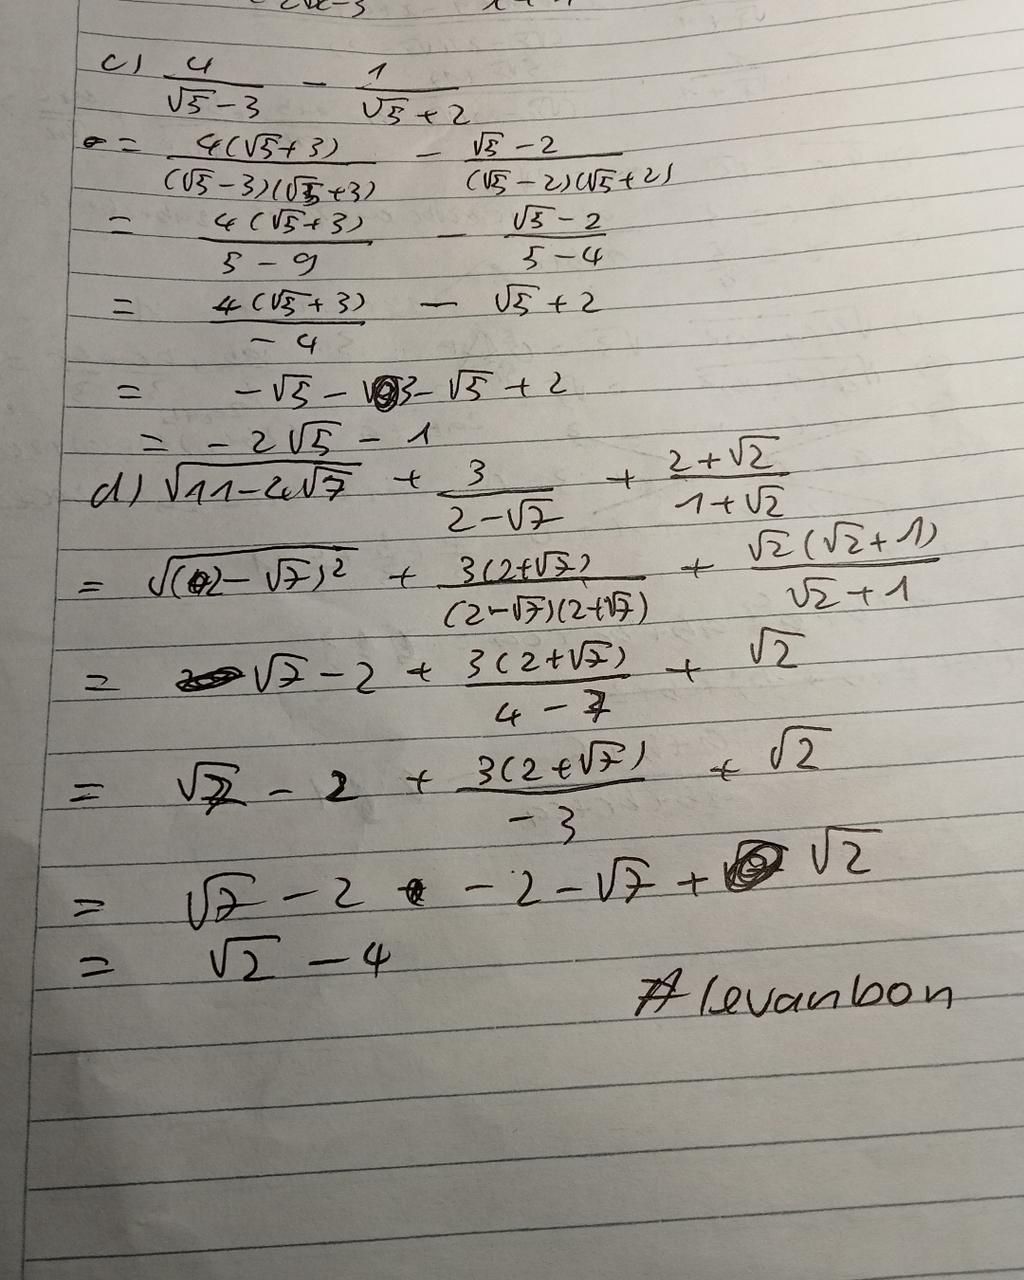 c) 4/(√5 - 3) - 1/(√5 + 2)
= 4(√5 + 3)/((√5 - 3)(√5 + 3)) - (√5 - 2)/((√5 - 2)(√5 + 2))
= 4(√5 + 3)/(5 - 9) - (√5 - 2)/(5 - 4)
= 4(√5 + 3)/(-4) - √5 + 2
= -√5 - 3 - √5 + 2
= -2√5 - 1
d) √(11 - 4√7) + 3/(2 - √7) + (2 + √2)/(1 + √2)
= √((2 - √7)²) + 3(2 + √7)/((2 - √7)(2 + √7)) + √2(√2 + 1)/(√2 + 1)
= √7 - 2 + 3(2 + √7)/(4 - 7) + √2
= √7 - 2 + 3(2 + √7)/(-3) + √2
= √7 - 2 - 2 - √7 + √2
= √2 - 4
#levanbon